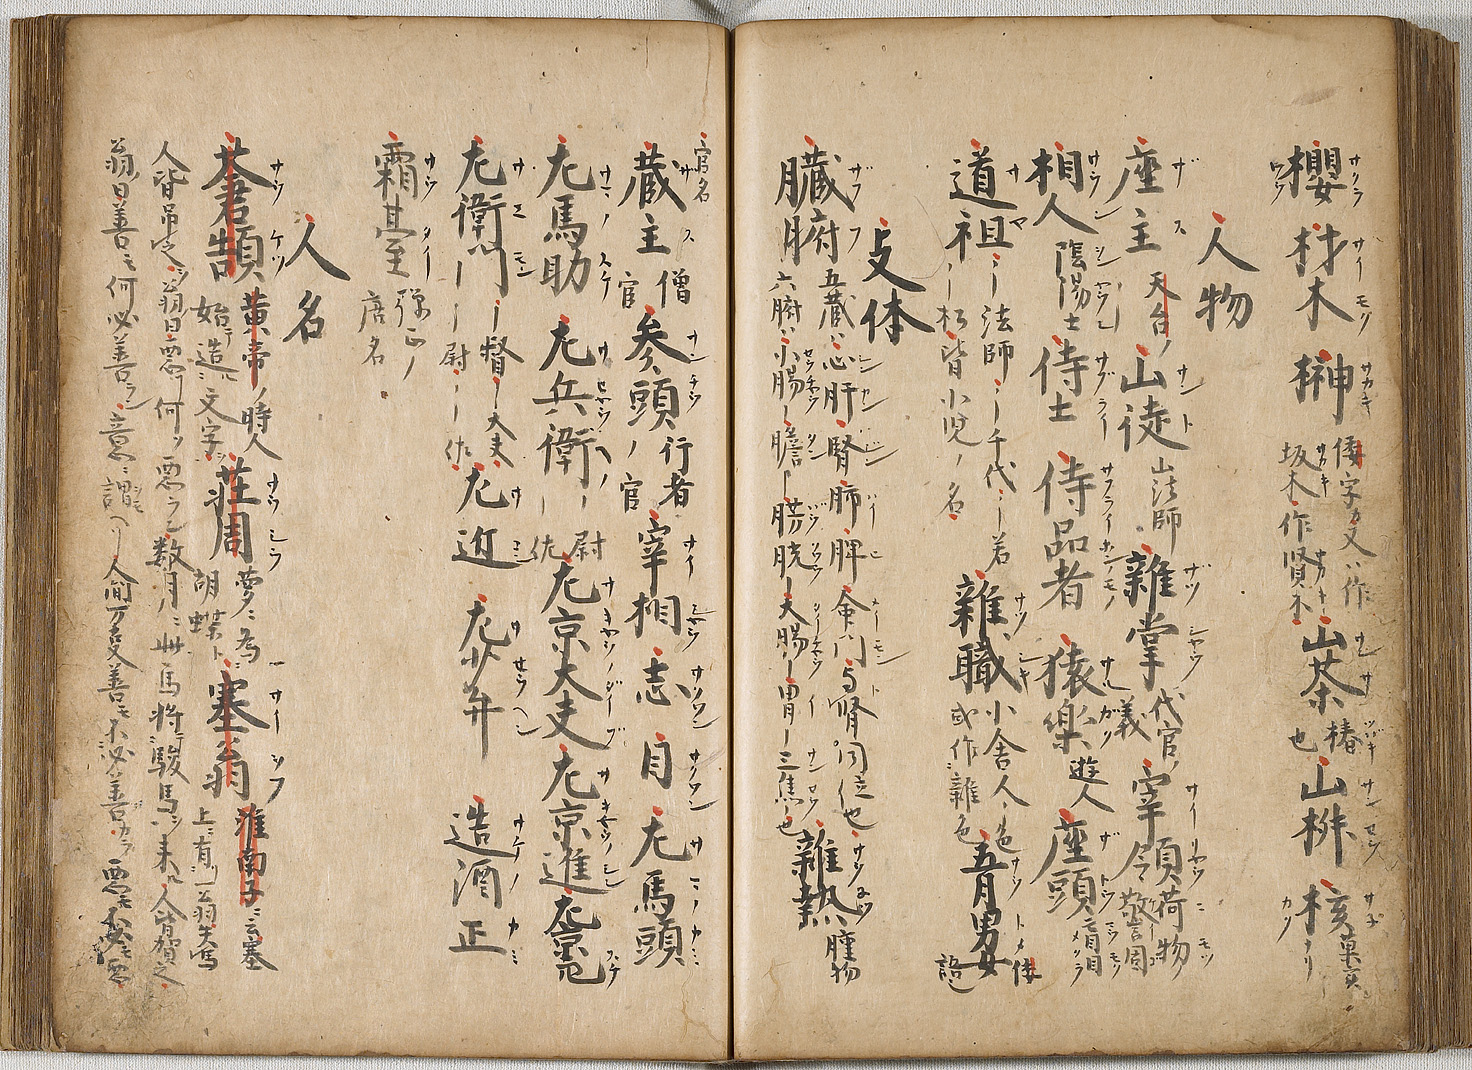 櫻 材木 榊 倭字又ハ作
坂木作賢木 山茶 椿
也 山椒 核 菓実
人物
座主 天台ノ 山徒 山法師 雜掌 代官ノ
義 宰領 荷物
警固
相人 陰陽士 侍士 侍品者 猿樂 遊人 座頭 盲目
道祖 法師 千代 若
皆小児ノ名 雜職 小舎人ノ色
或作雜色 五月男女 倭
語
支体
臓腑 五蔵ハ心肝腎肺脾命門与腎同位也
六腑ハ小腸 膽 膀胱 大腸 胃 三焦也 雜熱 腫物
官名
蔵主 僧
官 参頭 行者
ノ官 宰相 志 目 左馬頭
左馬助 左兵衛 尉
佐 左京大夫 左京進 左京亮
左衛門 督 大夫
尉 佐 左近 左少弁 造酒正
霜臺 弾正ノ
唐名
人名
蒼頡 黄帝ノ時人
始造文字 莊周 夢為
胡蝶ト 塞翁 淮南子ニ云塞
上ニ有一翁失馬
人皆吊之翁曰 何 悪 数月ニ此馬将駿馬来ル人皆賀之
翁曰善モ何必善ラン 意ニ謂ヘリ人間万変善モ不必善 悪モ不必悪